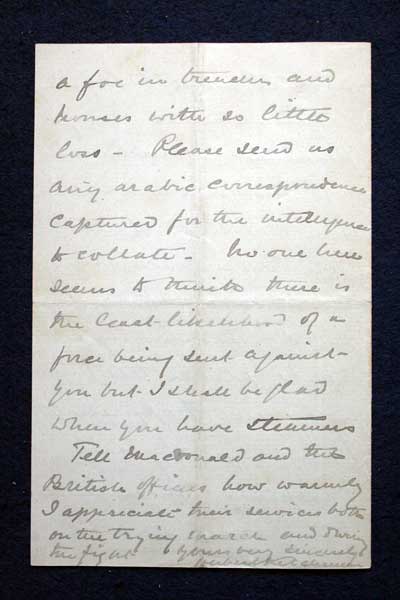 a foe in trenches and
houses with so little
loss - Please send us
any arabic correspondence
captured for the intelligence
to collate - No one here
seems to think there is
the least likelihood of a
force being sent against
you but I shall be glad
when you have steamers
Tell Macdonald and the
British officers how warmly
I appreciate their services both
on the trying march and during
the fight yours very sincerely
Herbert Kitchener